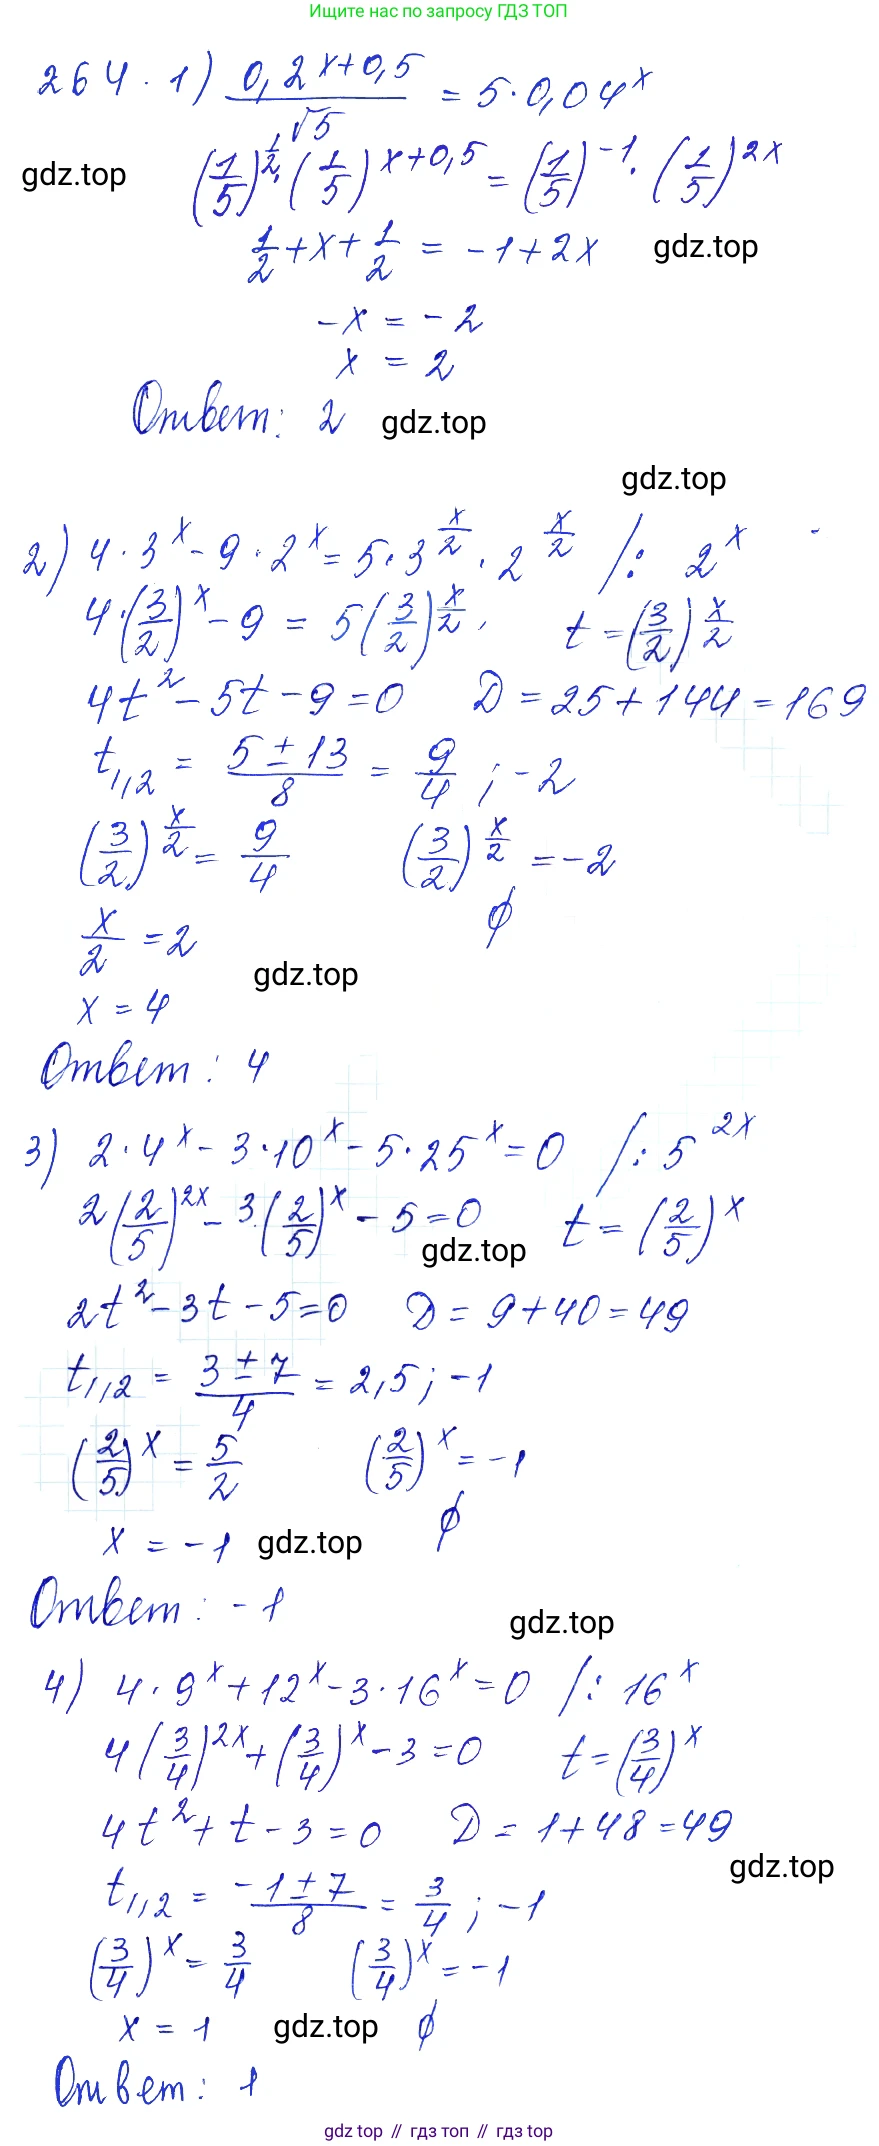 Ищите нас по запросу ГДЗ ТОП
264. 1) 0,2^(x+0,5) / √5 = 5 · 0,04^x
gdz.top
(1/5)^(1/2) · (1/5)^(x+0,5) = (1/5)^(-1) · (1/5)^(2x)
1/2 + x + 1/2 = -1 + 2x gdz.top
-x = -2
x = 2
Ответ: 2 gdz.top
gdz.top
2) 4 · 3^x - 9 · 2^x = 5 · 3^(x/2) · 2^(x/2) /: 2^x
4 · (3/2)^x - 9 = 5 (3/2)^(x/2), t = (3/2)^(x/2)
4t^2 - 5t - 9 = 0 D = 25 + 144 = 169
t1,2 = (5 ± 13)/8 = 9/4 ; -2
(3/2)^(x/2) = 9/4 (3/2)^(x/2) = -2
x/2 = 2 ∅
gdz.top
x = 4
Ответ: 4
3) 2 · 4^x - 3 · 10^x - 5 · 25^x = 0 /: 5^(2x)
2 (2/5)^(2x) - 3 · (2/5)^x - 5 = 0 t = (2/5)^x
gdz.top
2t^2 - 3t - 5 = 0 D = 9 + 40 = 49
t1,2 = (3 ± 7)/4 = 2,5 ; -1
(2/5)^x = 5/2 (2/5)^x = -1
x = -1 gdz.top ∅
Ответ: -1
gdz.top
4) 4 · 9^x + 12^x - 3 · 16^x = 0 /: 16^x
4 (3/4)^(2x) + (3/4)^x - 3 = 0 t = (3/4)^x
4t^2 + t - 3 = 0 D = 1 + 48 = 49
gdz.top
t1,2 = (-1 ± 7)/8 = 3/4 ; -1
(3/4)^x = 3/4 (3/4)^x = -1
x = 1 gdz.top ∅
Ответ: 1
gdz top // гдз топ // гдз top